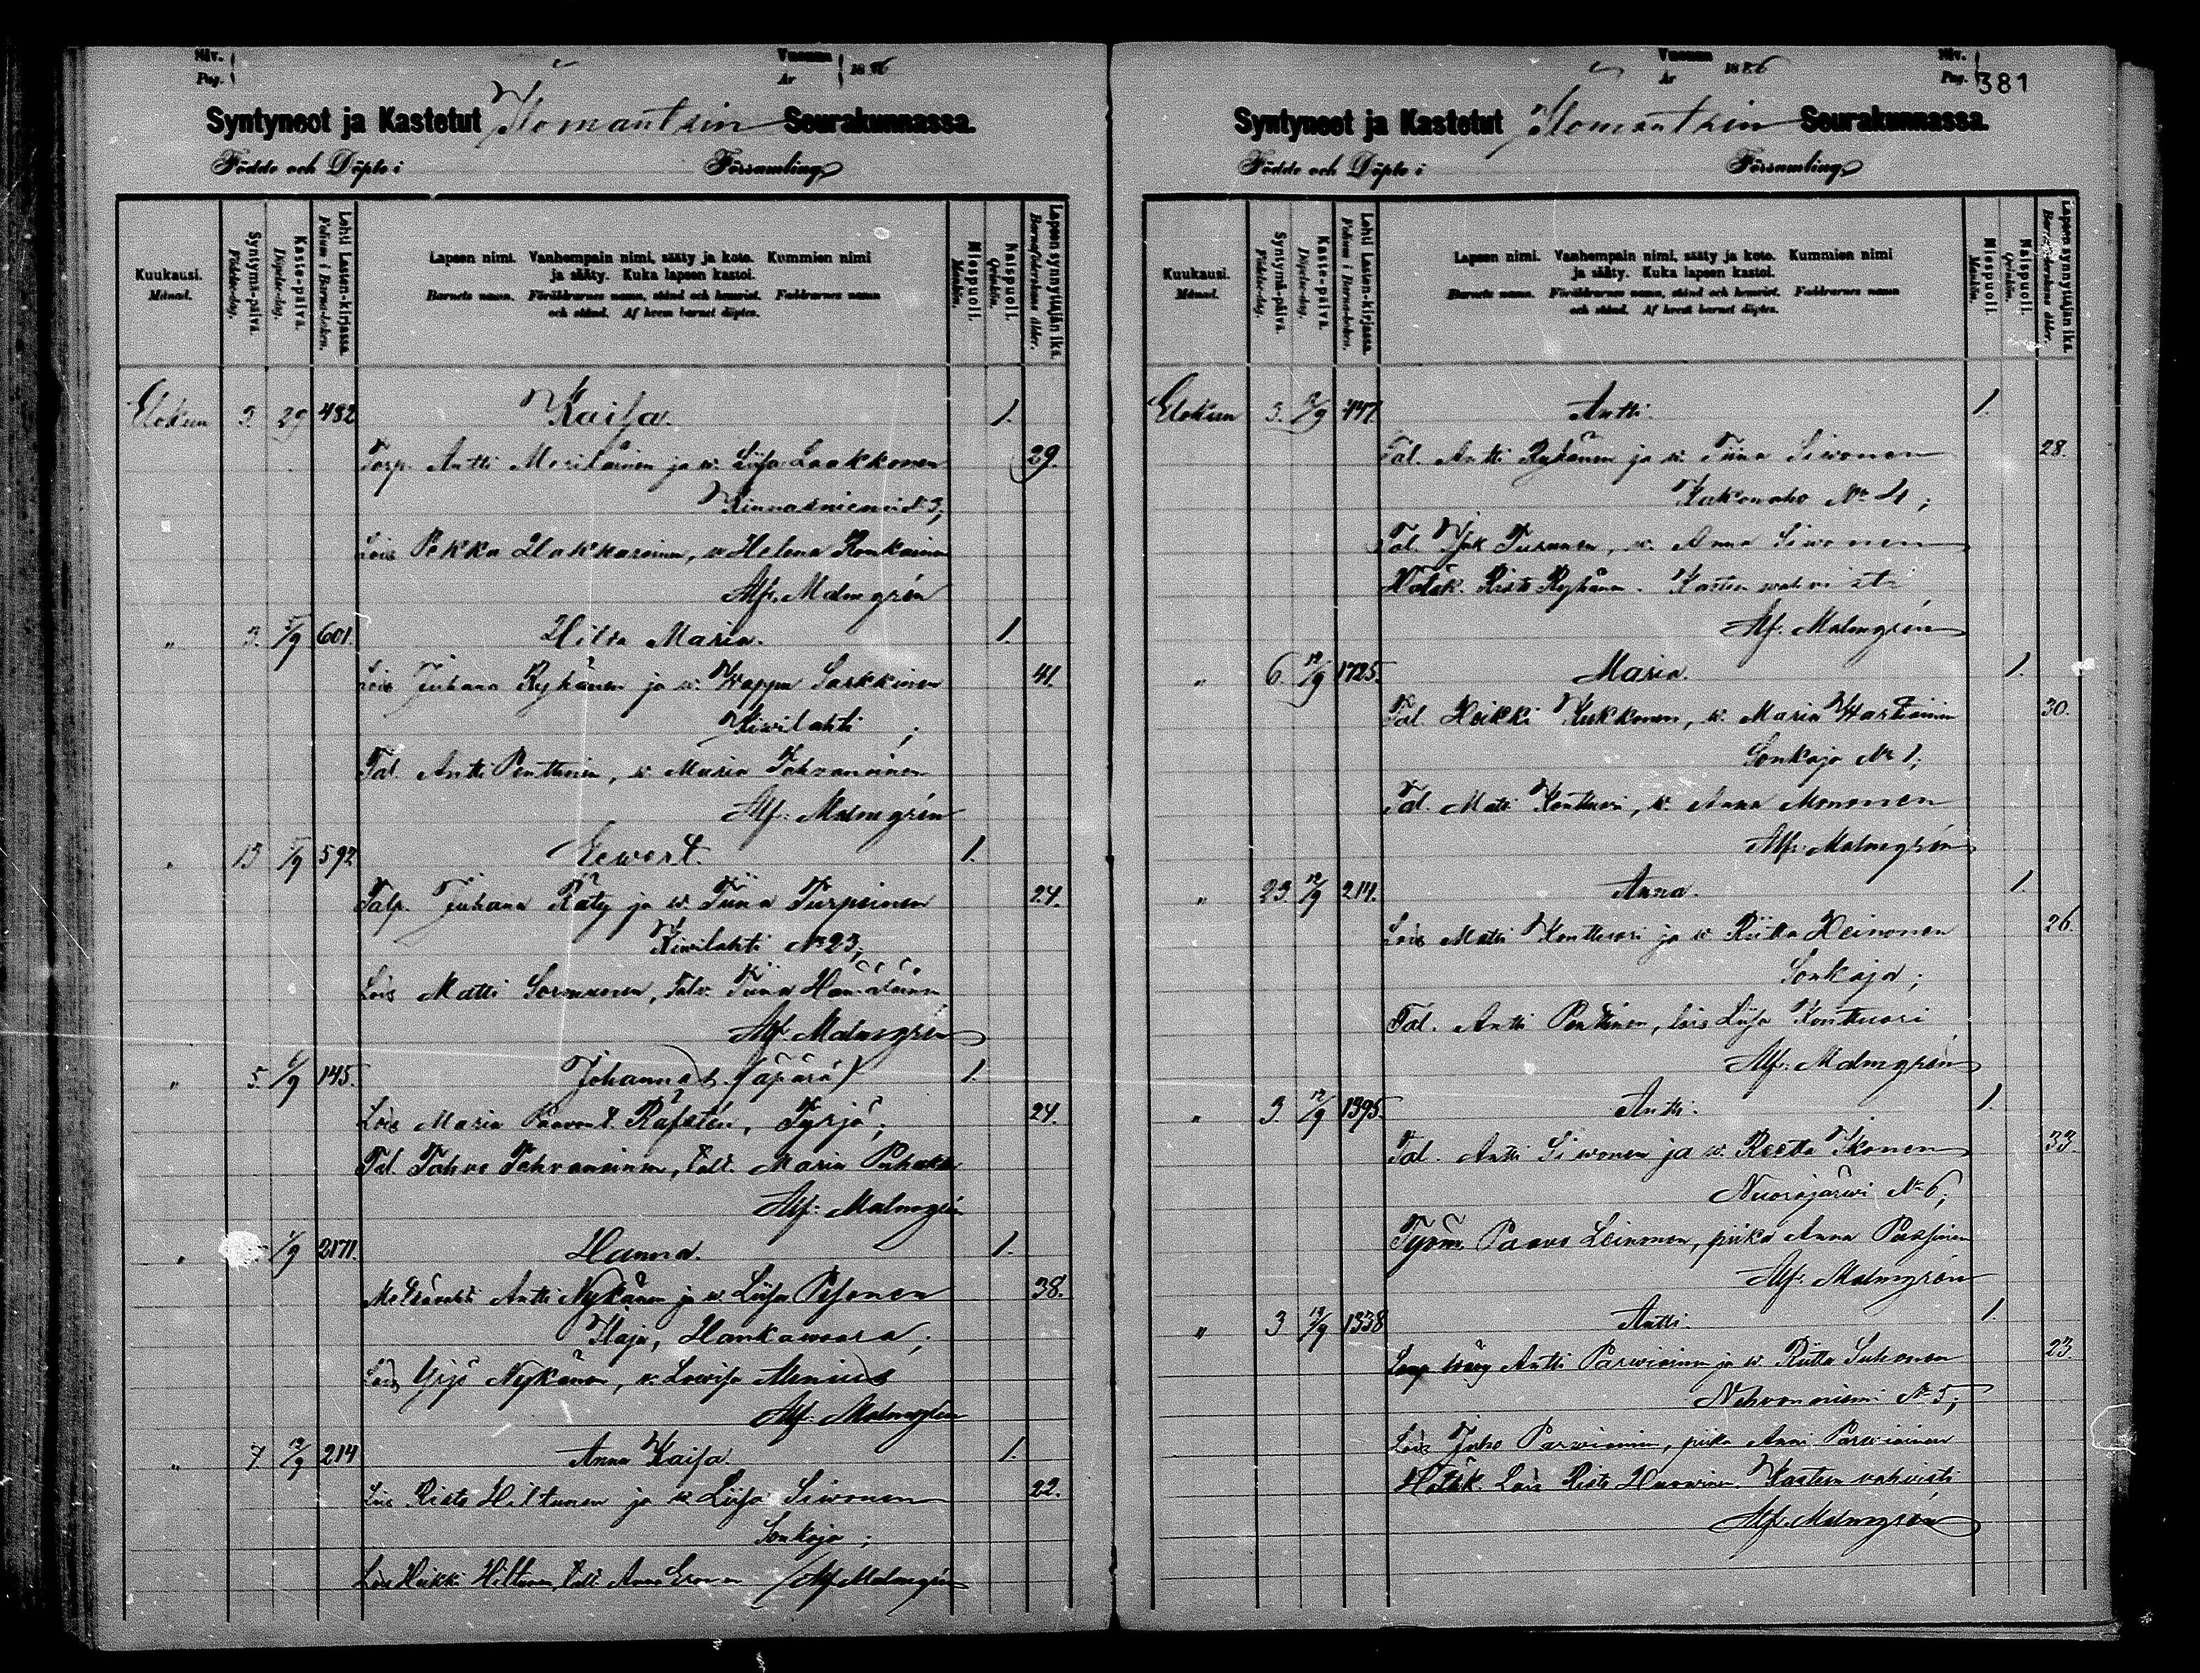 Siv.
Pag.
Vuonna
År
1886
Syntyneet ja Kastetut Ilomantsin Seurakunnassa.
Födde och Döpte i Församling
Kuukausi.
Månad.
Syntymä-päivä.
Födelse-dag.
Kaste-päivä.
Döpelse-dag.
Lehti Lasten-kirjassa.
Folium i Barna-boken.
Lapsen nimi. Vanhempain nimi, sääty ja koto. Kummien nimi
ja sääty. Kuka lapsen kastoi.
Barnets namn. Föräldrarnes namn, stånd och hemvist. Faddrarnes namn
och stånd. Af hvem barnet döptes.
Miespuoli.
Mankön.
Naispuoli.
Qvinkön.
Lapsen synnyttäjän ikä.
Barnaföderskans ålder.
Elokuu 3. 29 482 Kaisa. 1.
Torp. Antti Meriläinen ja v. Liisa Laakkonen 29.
Kinnasniemi № 3;
Lois Pekka Hakkarainen, v. Helena Ronkainen
Alf. Malmgrén
„ 3. 5/9 601. Hilda Maria. 1.
Lois Juhana Ryhänen ja w. Wappu Sarkkinen 41.
Kiwilahti ;
Tal. Antti Penttinen, w. Maria Tahvanainen
Alf. Malmgrén
„ 13 5/9 592 Eewert. 1.
Talp. Juhana Räty ja w. Tiina Turpeinen 24.
Kiwilahti № 23;
Lois Matti Sormunen, Talv. Tiina Hämäläinen
Alf. Malmgrén
„ 5. 6/9 145. Johannes (äpärä) 1.
Lois Maria Paavont. Rafstén, Tyrjä; 24.
Tal. Tahvo Tahvanainen, talt. Maria Puhakka
Alf. Malmgrén
„ 7/9 2171. Hanna. 1.
Metsävahti Antti Nykänen ja w. Liisa Pesonen 38.
Ilaja, Hankawaara;
Lois Yrjö Nykänen, v. Lowisa Alenius
Alf. Malmgrén
„ 7 12/9 214 Anna Kaisa. 1.
Lois Risto Hiltunen ja w. Liisa Siwonen 22.
Sonkaja ;
Lois Heikki Hiltunen, talt. Anna Eronen Alf. Malmgrén
Siv.
Pag. 381
Vuonna
År
1886
Syntyneet ja Kastetut Ilomantsin Seurakunnassa.
Födde och Döpte i Församling
Kuukausi.
Månad.
Syntymä-päivä.
Födelse-dag.
Kaste-päivä.
Döpelse-dag.
Lehti Lasten-kirjassa.
Folium i Barna-boken.
Lapsen nimi. Vanhempain nimi, sääty ja koto. Kummien nimi
ja sääty. Kuka lapsen kastoi.
Barnets namn. Föräldrarnes namn, stånd och hemvist. Faddrarnes namn
och stånd. Af hvem barnet döptes.
Miespuoli.
Mankön.
Naispuoli.
Qvinkön.
Lapsen synnyttäjän ikä.
Barnaföderskans ålder.
Elokuu 3. 12/9 447. Antti. 1.
Tal. Antti Ryhänen ja w. Tiina Siwonen 28.
Kakonaho № 4;
Tal. Turunen, w. Anna Siwonen
Hätäk. Risto Ryhänen. Kasteen wahvisti
Alf. Malmgrén
„ 6. 12/9 1725. Maria. 1.
Tal. Heikki Kukkonen, w. Maria Wartiainen 30.
Sonkaja № 1;
Tal. Matti Konttuori, w. Anna Mononen
Alf. Malmgrén
„ 23. 12/9 214. Anna. 1.
Lois Matti Konttuori ja w Riitta Heinonen 26.
Sonkaja;
Tal. Antti Penttinen, lois Liisa Konttuori
Alf. Malmgrén
„ 3. 12/9 1395. Antti. 1.
Tal. Antti Siwonen ja w. Reetta Ikonen 33.
Nuorajärwi № 6;
Työm. Paavo Leinonen, piika Anna Pussinen
Alf. Malmgrén
„ 3 19/9 1338 Antti. 1.
Antti Parwiainen ja w. Riitta Suhonen 23.
Nehvonniemi № 5;
Lois Juho Parwiainen, piika Anni Parwiainen
Hätäk. Lois Risto Huowinen. Kasteen vahvisti
Alf. Malmgrén